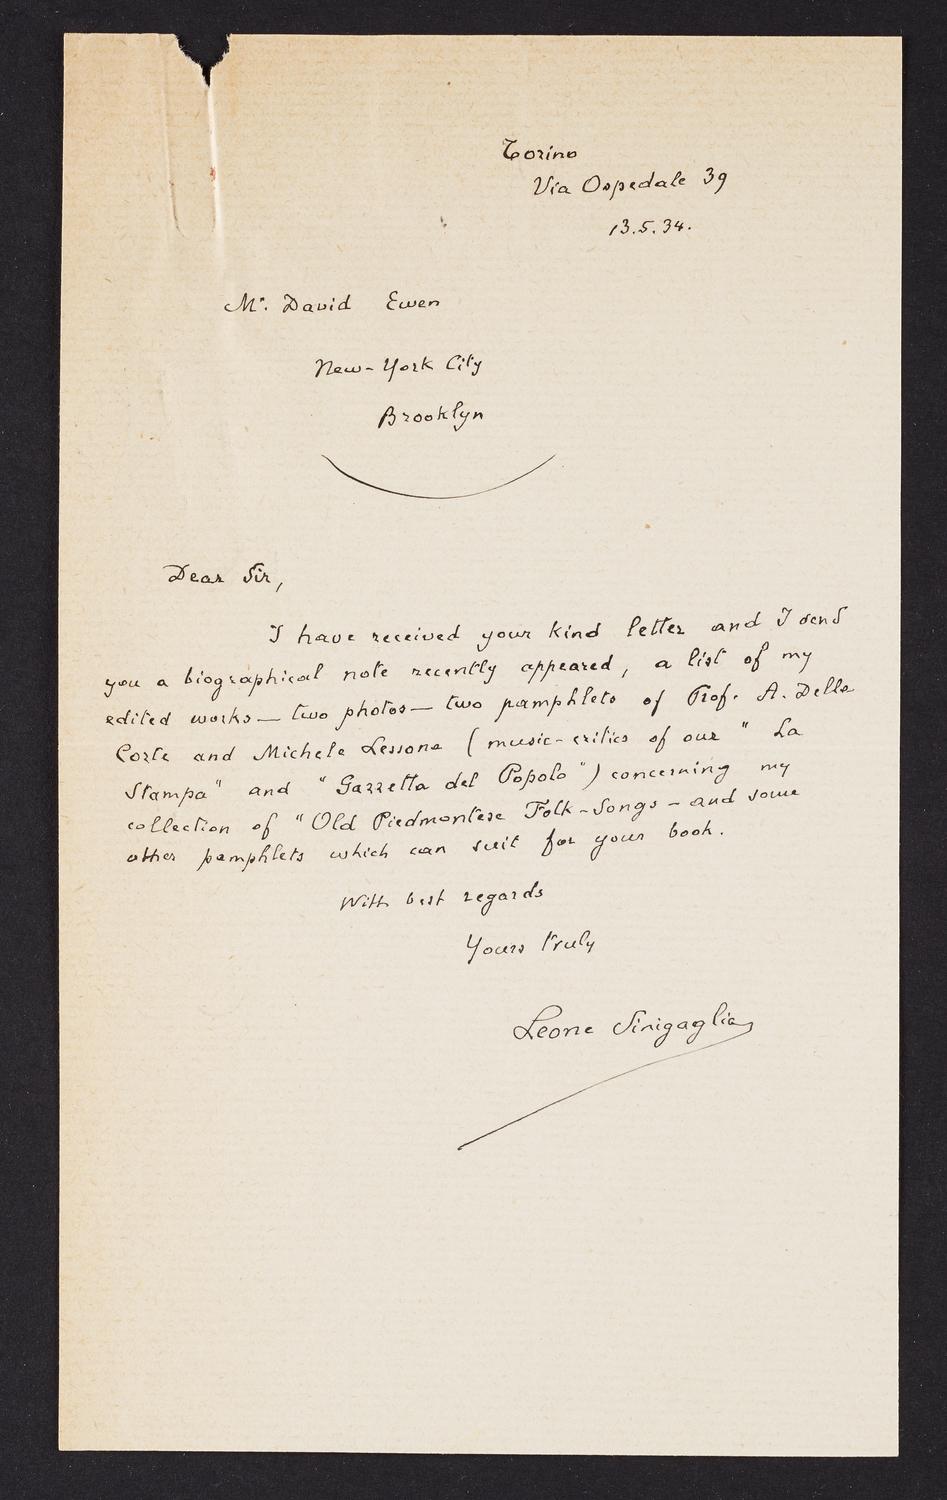 Torino
Via Ospedale 39
13.5.34.
Mr. David Ewen
New-York City
Brooklyn
Dear Sir,
I have received your kind letter and I send
you a biographical note recently appeared, a list of my
edited works — two photos — two pamphlets of Prof. A. Della
Corte and Michele Lessona (music-critics of our " La
Stampa" and "Gazzetta del Popolo") concerning my
collection of "Old Piedmontese Folk-Songs - and some
other pamphlets which can suit for your book.
With best regards
Yours truly
Leone Sinigaglia